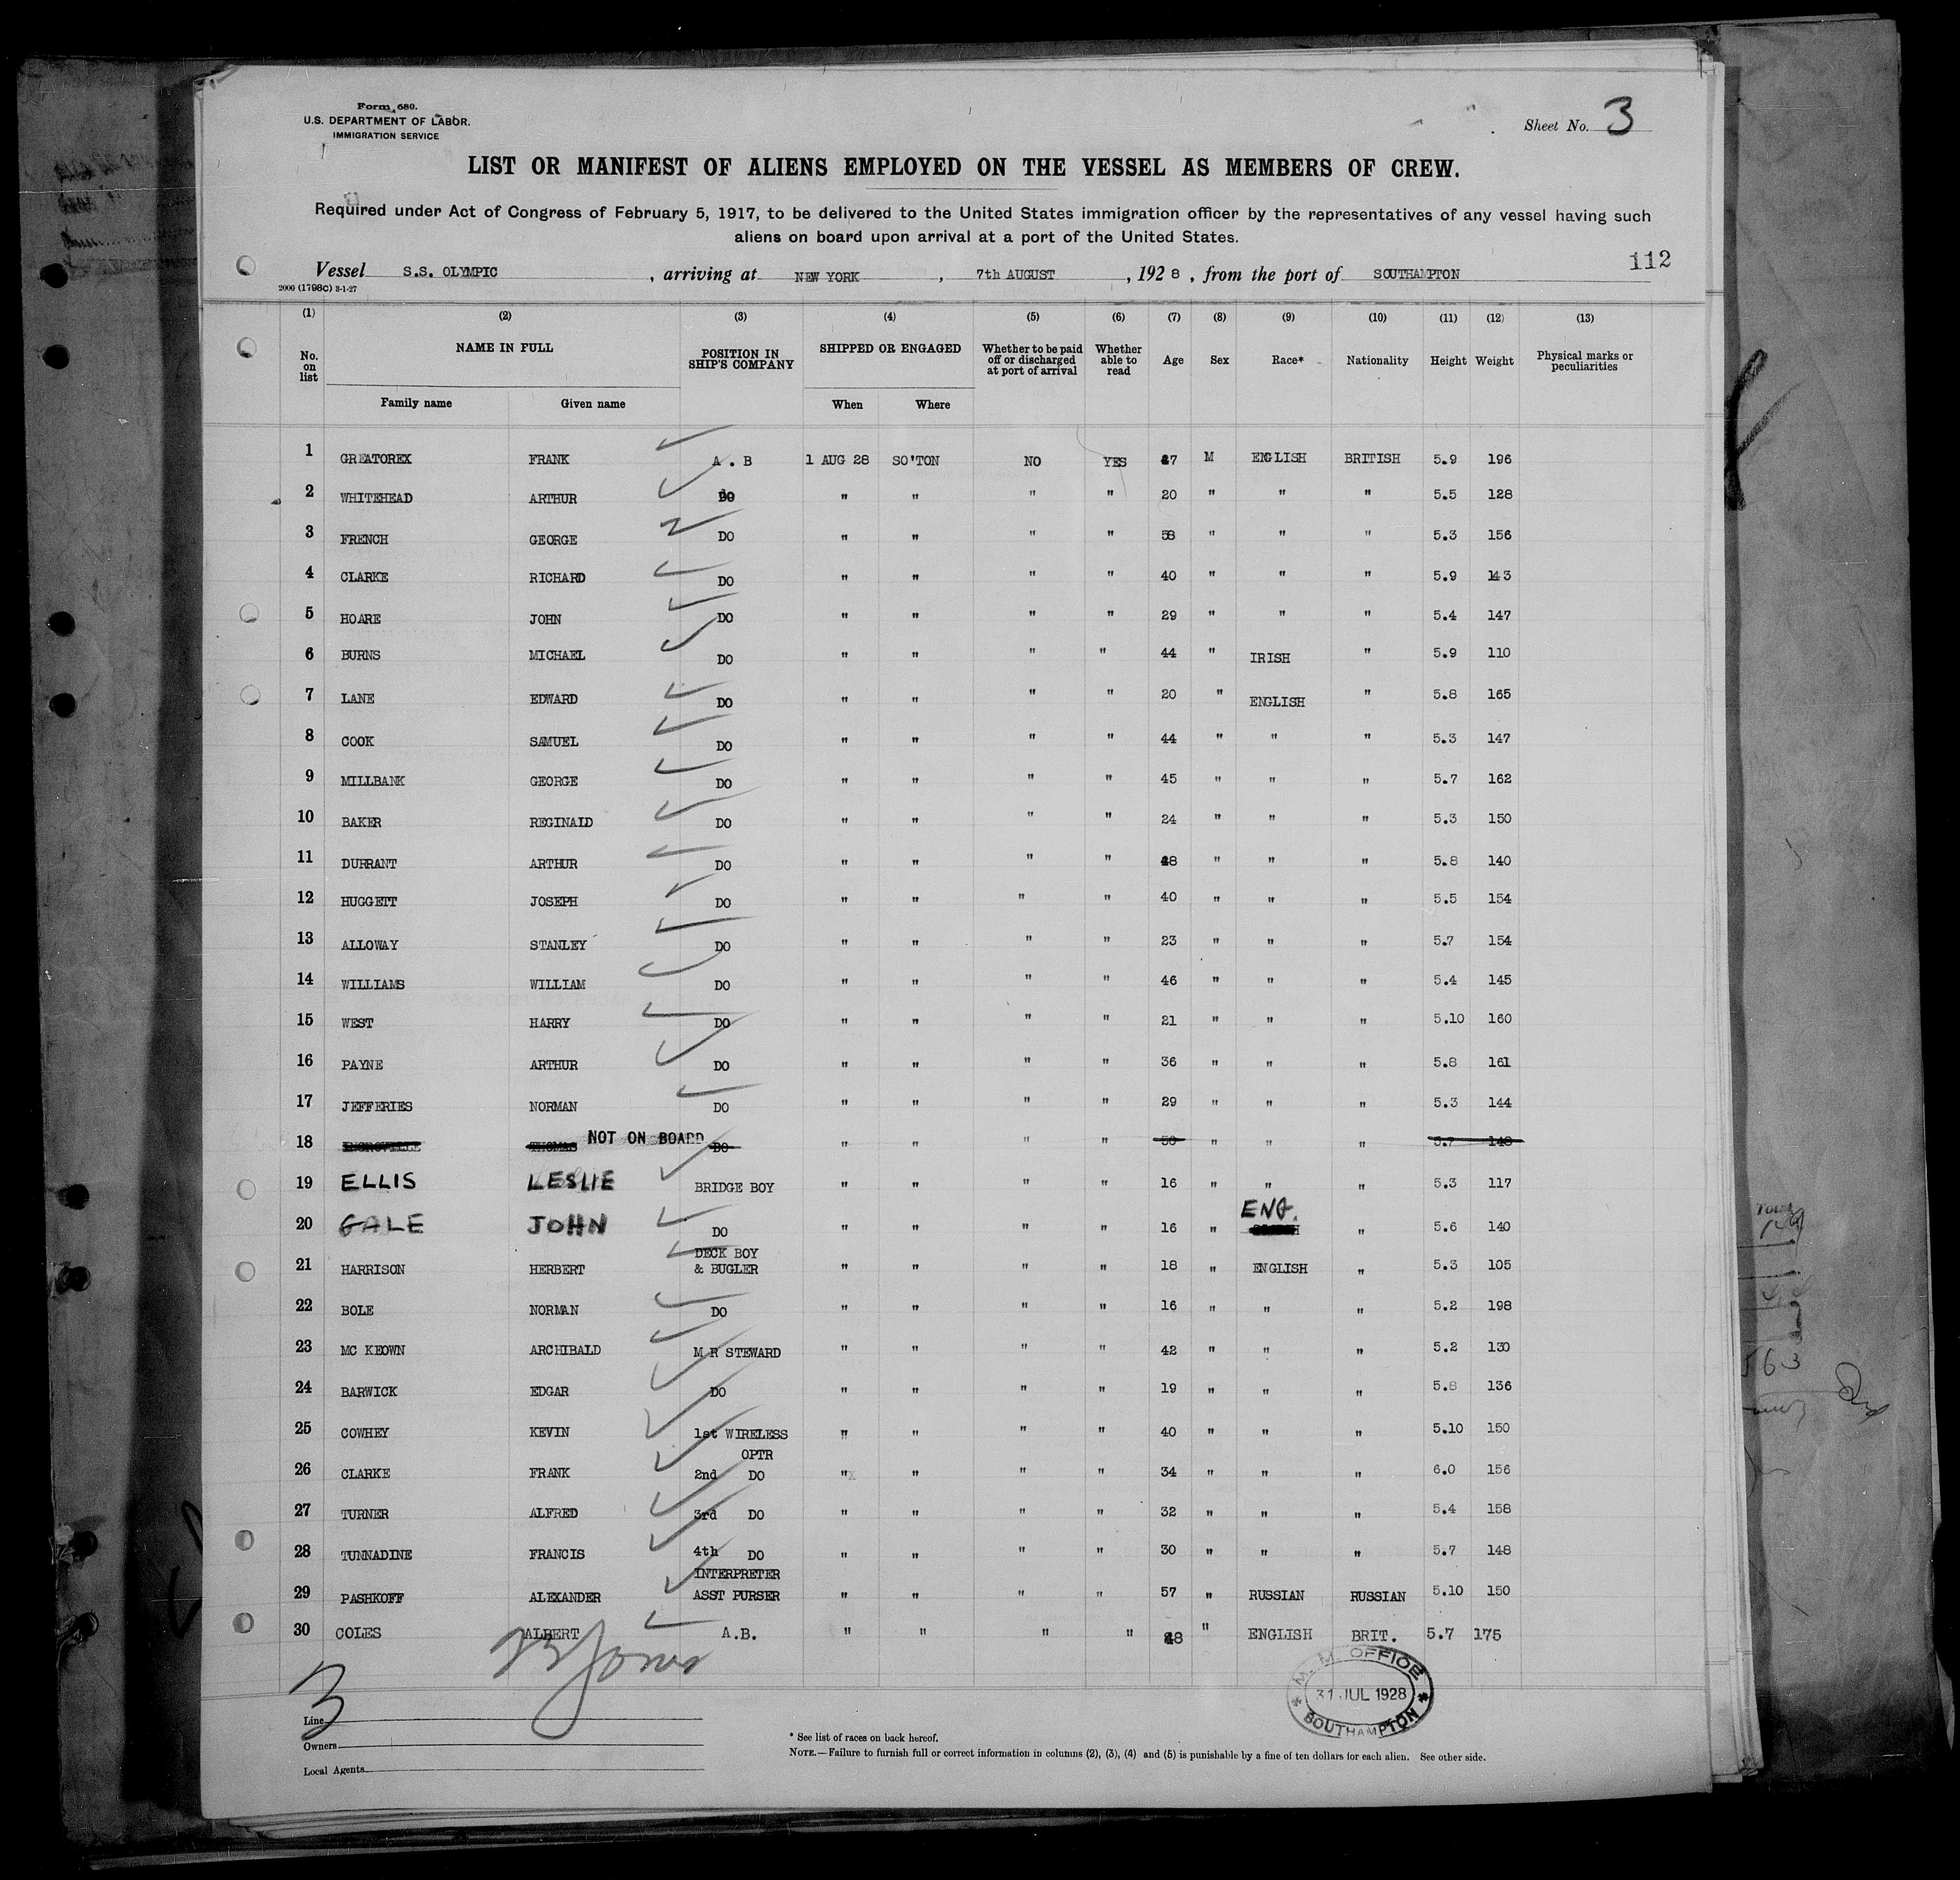 Form 680.
U.S. DEPARTMENT OF LABOR.
IMMIGRATION SERVICE
Sheet No. 3
LIST OR MANIFEST OF ALIENS EMPLOYED ON THE VESSEL AS MEMBERS OF CREW.
Required under Act of Congress of February 5, 1917, to be delivered to the United States immigration officer by the representatives of any vessel having such
aliens on board upon arrival at a port of the United States.
112
Vessel S.S. OLYMPIC, arriving at NEW YORK, 7th AUGUST, 1928, from the port of SOUTHAMPTON
2000 (1798C) 3-1-27
(1) (2) (3) (4) (5) (6) (7) (8) (9) (10) (11) (12) (13)
No. on list NAME IN FULL POSITION IN SHIP'S COMPANY SHIPPED OR ENGAGED Whether to be paid off or discharged at port of arrival Whether able to read Age Sex Race* Nationality Height Weight Physical marks or peculiarities
Family name Given name When Where
1 GREATOREX FRANK A.B 1 AUG 28 SO'TON NO YES 47 M ENGLISH BRITISH 5.9 196
2 WHITEHEAD ARTHUR DO " " " " 20 " " " 5.5 128
3 FRENCH GEORGE DO " " " " 58 " " " 5.3 156
4 CLARKE RICHARD DO " " " " 40 " " " 5.9 143
5 HOARE JOHN DO " " " " 29 " " " 5.4 147
6 BURNS MICHAEL DO " " " " 44 " IRISH " 5.9 110
7 LANE EDWARD DO " " " " 20 " ENGLISH " 5.8 165
8 COOK SAMUEL DO " " " " 44 " " " 5.3 147
9 MILLBANK GEORGE DO " " " " 45 " " " 5.7 162
10 BAKER REGINALD DO " " " " 24 " " " 5.3 150
11 DURRANT ARTHUR DO " " " " 48 " " " 5.8 140
12 HUGGETT JOSEPH DO " " " " 40 " " " 5.5 154
13 ALLOWAY STANLEY DO " " " " 23 " " " 5.7 154
14 WILLIAMS WILLIAM DO " " " " 46 " " " 5.4 145
15 WEST HARRY DO " " " " 21 " " " 5.10 160
16 PAYNE ARTHUR DO " " " " 36 " " " 5.8 161
17 JEFFERIES NORMAN DO " " " " 29 " " " 5.3 144
18 THOMAS NOT ON BOARD DO " " " " 50 " " " 5.7 148
19 ELLIS LESLIE BRIDGE BOY " " " " 16 " " " 5.3 117
20 GALE JOHN DO " " " " 16 " ENG. " 5.6 140
21 HARRISON HERBERT DECK BOY & BUGLER " " " " 18 " ENGLISH " 5.3 105
22 BOLE NORMAN DO " " " " 16 " " " 5.2 198
23 MC KEOWN ARCHIBALD M R STEWARD " " " " 42 " " " 5.2 130
24 BARWICK EDGAR DO " " " " 19 " " " 5.8 136
25 COWHEY KEVIN 1st WIRELESS OPTR " " " " 40 " " " 5.10 150
26 CLARKE FRANK 2nd DO " " " " 34 " " " 6.0 156
27 TURNER ALFRED 3rd DO " " " " 32 " " " 5.4 158
28 TUNNADINE FRANCIS 4th DO " " " " 30 " " " 5.7 148
29 PASHKOFF ALEXANDER INTERPRETER ASST PURSER " " " " 57 " RUSSIAN RUSSIAN 5.10 150
30 COLES ALBERT A.B. " " " " 48 " ENGLISH BRIT. 5.7 175
3
M.M. OFFICE
31 JUL 1928
SOUTHAMPTON
Line
Owners
Local Agents
* See list of races on back hereof.
NOTE.—Failure to furnish full or correct information in columns (2), (3), (4) and (5) is punishable by a fine of ten dollars for each alien. See other side.